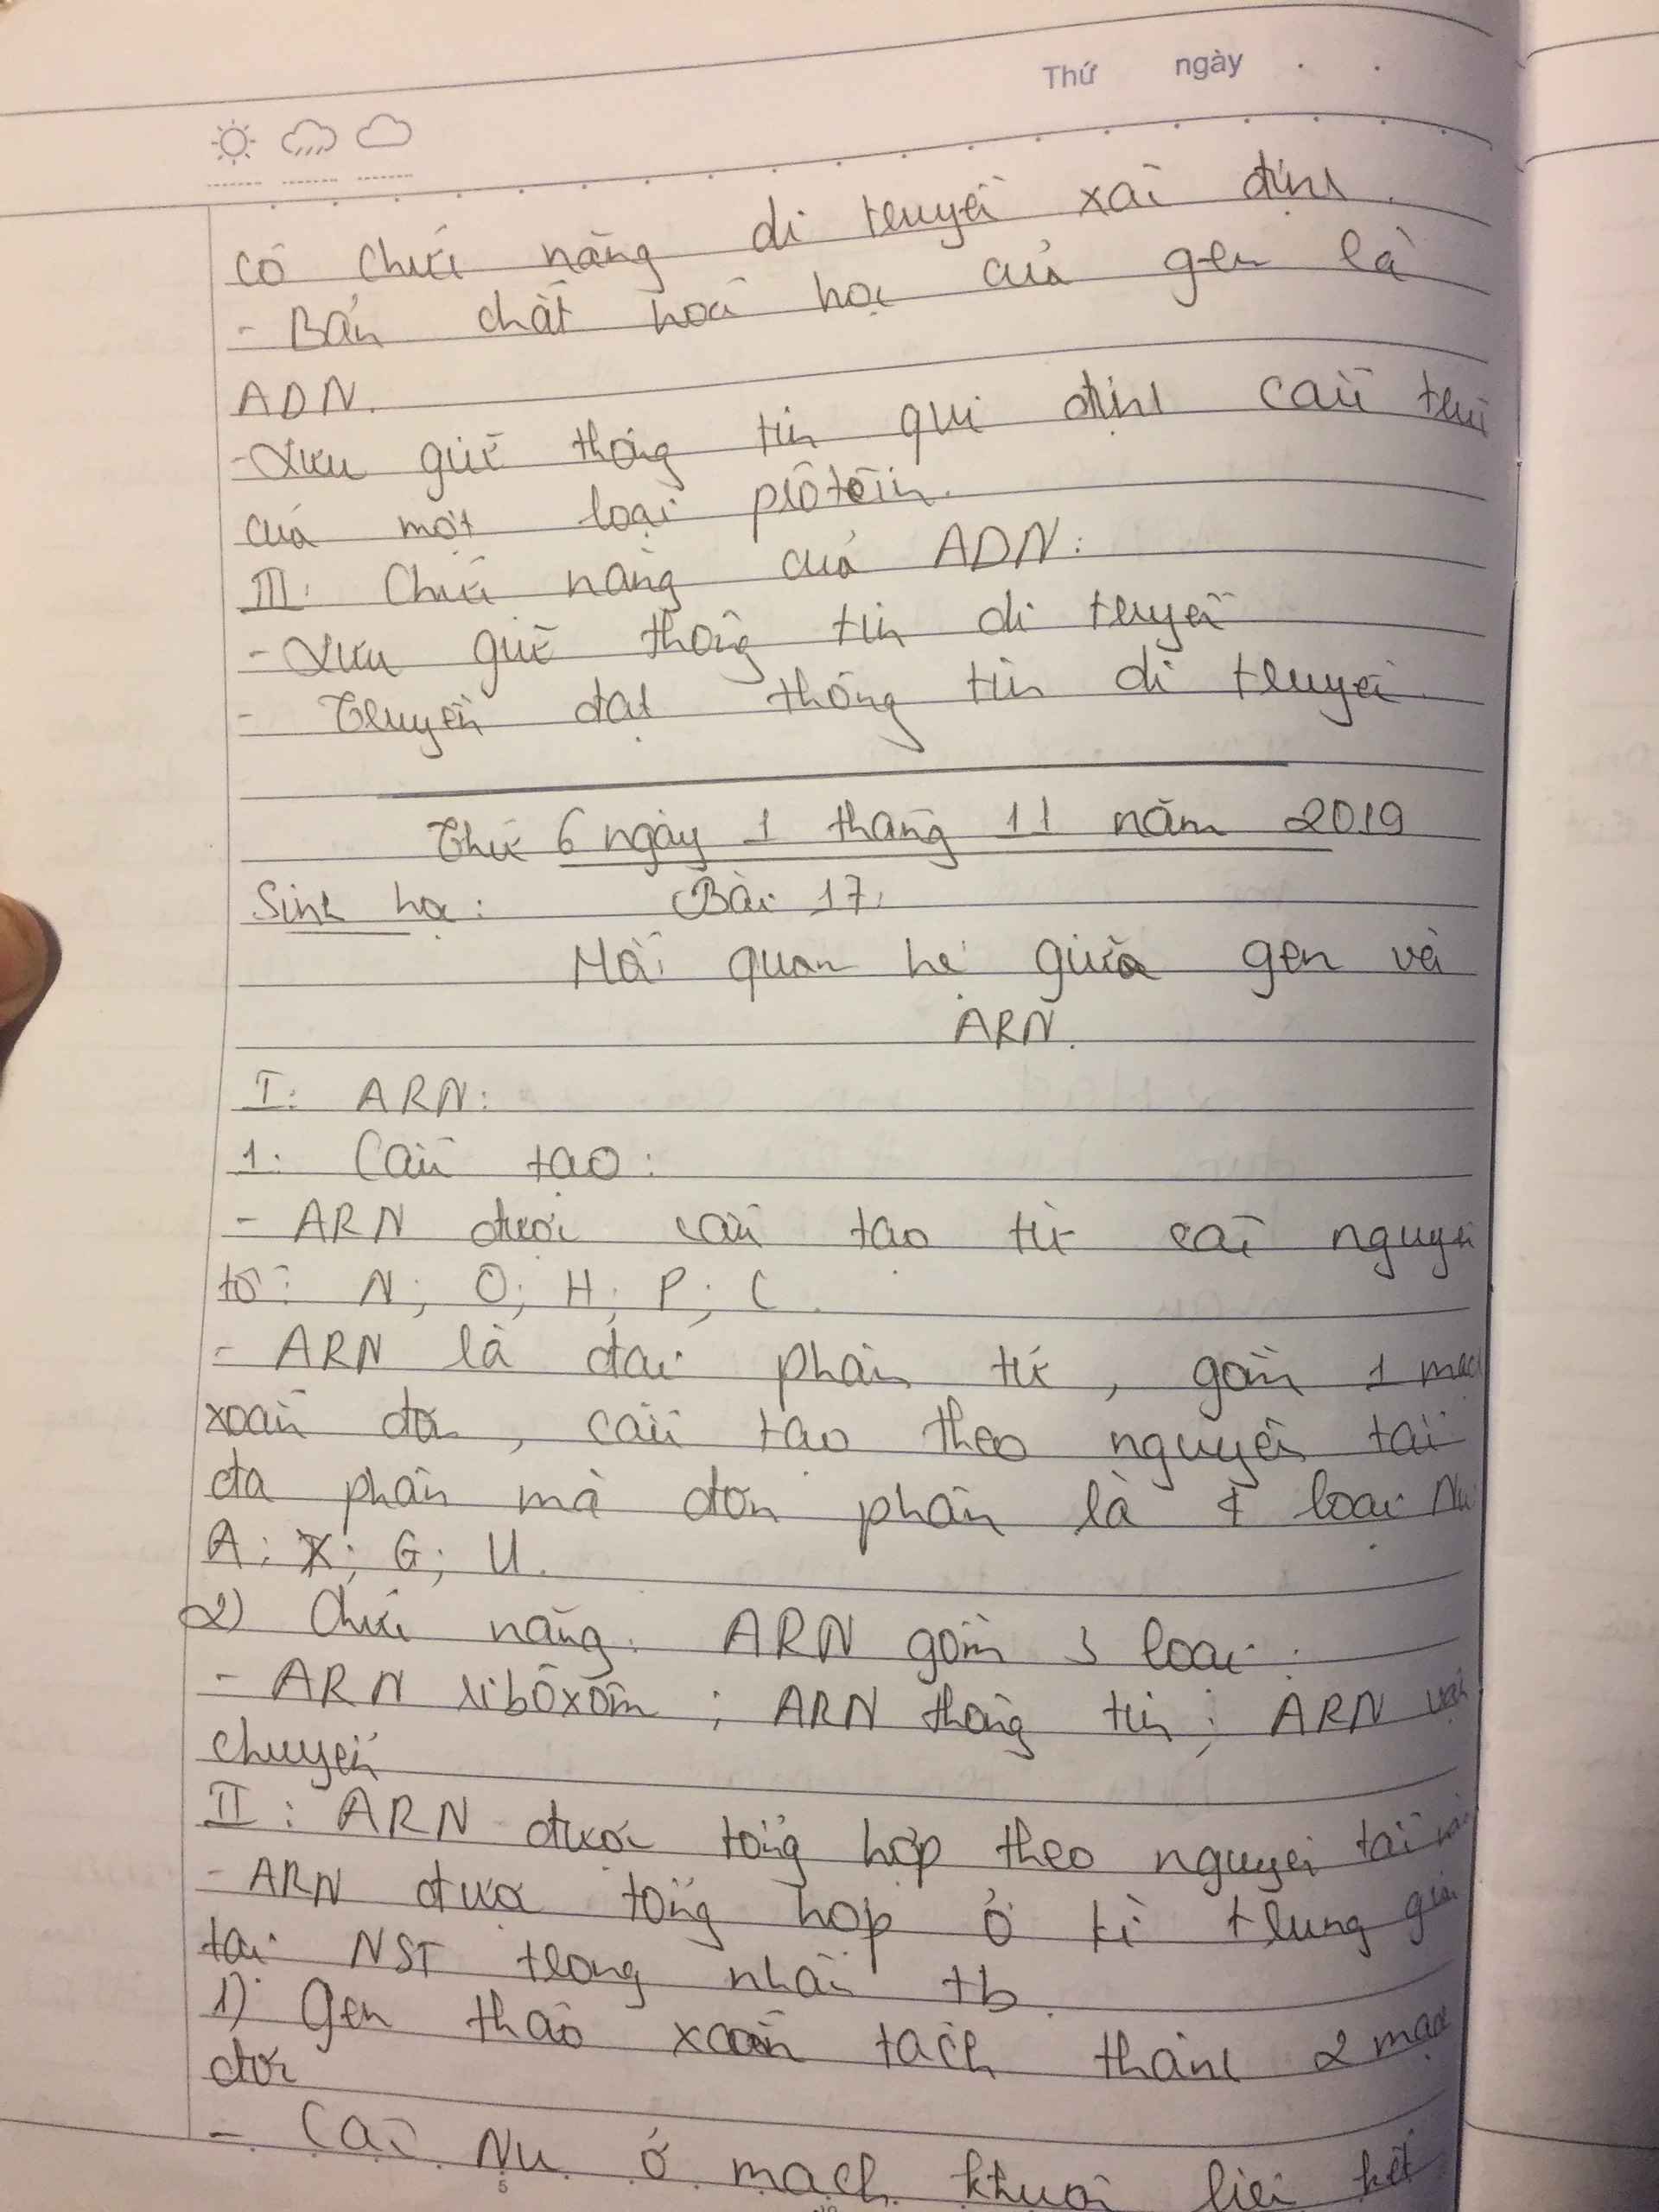 Thứ ngày . .
có chức năng di truyền xác định.
- Bản chất hoá học của gen là
ADN.
- Lưu giữ thông tin qui định cấu trúc
của một loại prôtêin.
III. Chức năng của ADN:
- Lưu giữ thông tin di truyền
- Truyền đạt thông tin di truyền.
Thứ 6 ngày 1 tháng 11 năm 2019
Sinh học: Bài 17.
Mối quan hệ giữa gen và
ARN.
I: ARN:
1. Cấu tạo:
- ARN được cấu tạo từ các nguyên
tố: N; O; H; P; C.
- ARN là đại phân tử, gồm 1 mạch
xoắn đơn, cấu tạo theo nguyên tắc
đa phân mà đơn phân là 4 loại Nu
A; X; G; U.
2) Chức năng. ARN gồm 3 loại:
- ARN ribôxôm; ARN thông tin; ARN vận
chuyển
II: ARN được tổng hợp theo nguyên tắc
- ARN được tổng hợp ở kì trung gian
tại NST trong nhân tb.
1) Gen tháo xoắn tách thành 2 mạch
đơn
- Các Nu ở mạch khuôn liên kết